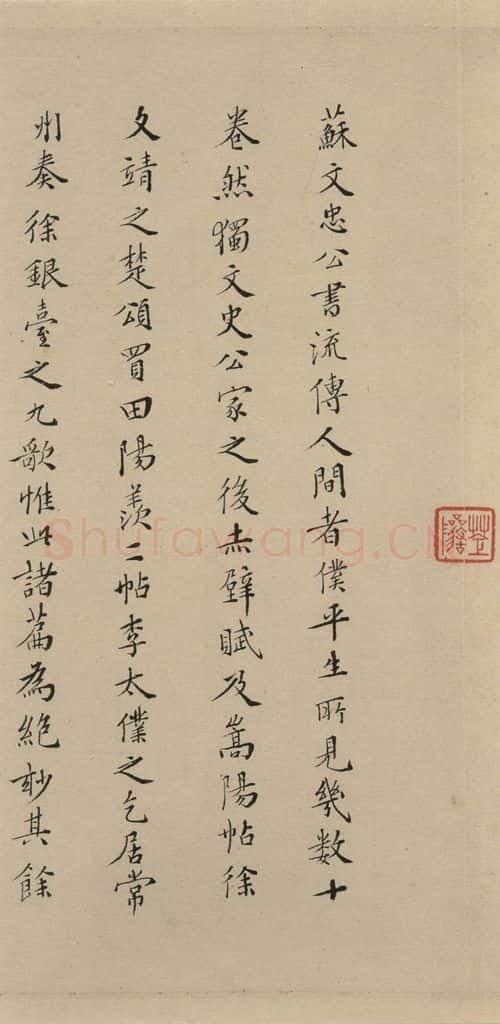 蘇文忠公書流傳人間者僕平生所見幾数十
卷然獨文史公家之後赤壁賦及嵩陽帖徐
文靖之楚頌買田陽羨二帖李太僕之乞居常
州奏徐銀臺之九歌惟此諸篇為絶妙其餘
Shufawang.cn